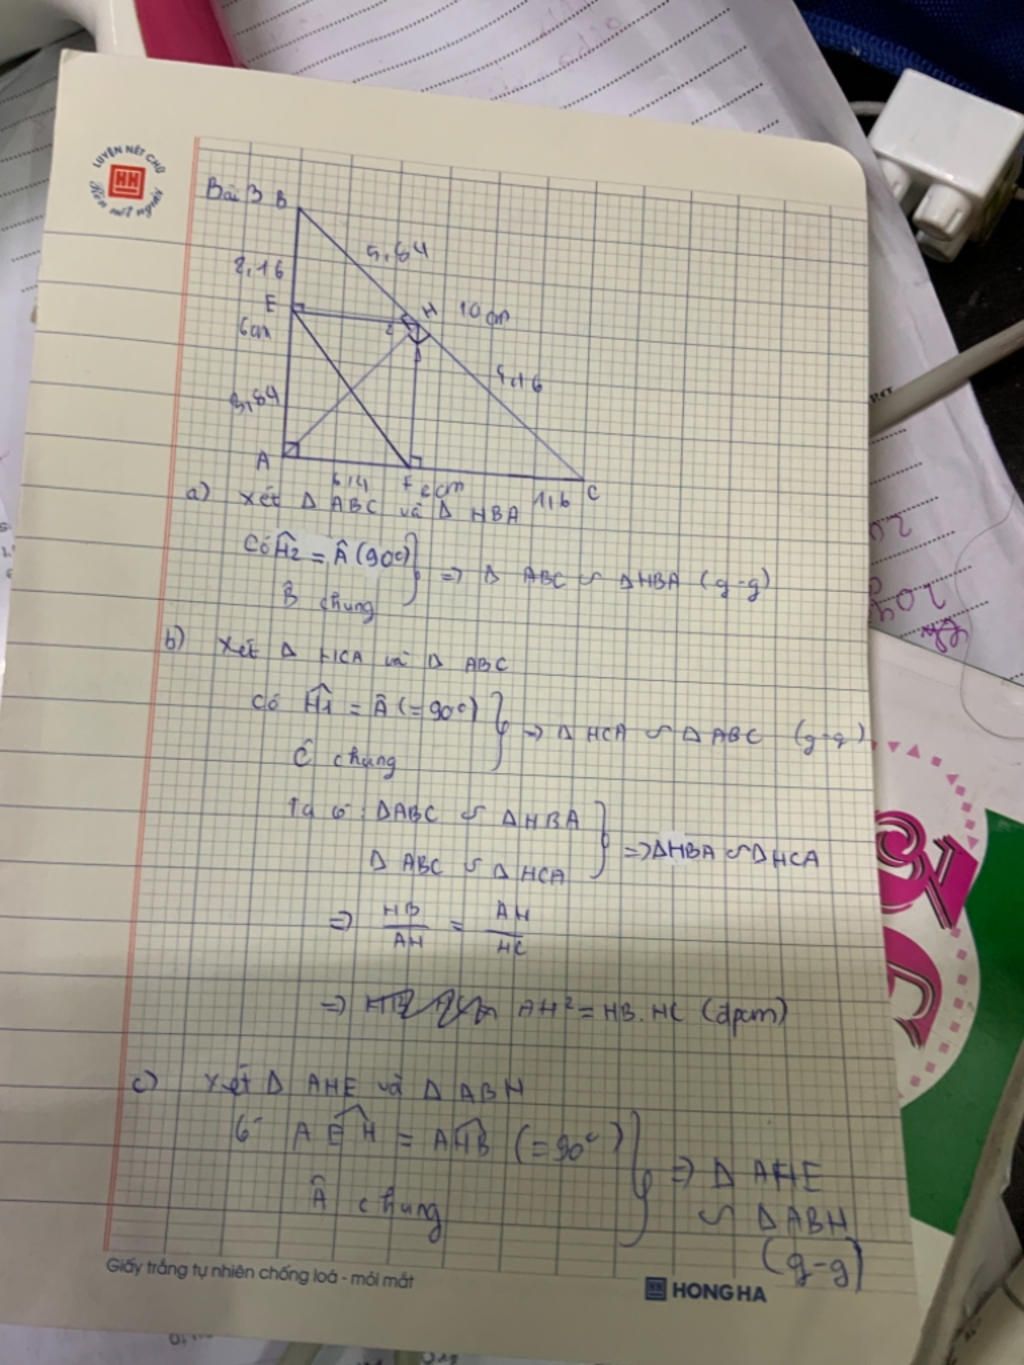 LUYỆN NÉT CHỮ
HH
Rèn nết người
Bài 3 B
5,84
2,16
E
H 10cm
6cm
2
4,16
3,84
A
6,4 F 8cm 1,6 C
a) Xét Δ ABC và Δ HBA
Có Ĥ2 = Â (90°)
B̂ chung
=> Δ ABC ∽ ΔHBA (g-g)
b) Xét Δ HCA và Δ ABC
Có Ĥ1 = Â (=90°)
Ĉ chung
=> Δ HCA ∽ Δ ABC (g-g)
Ta có: ΔABC ∽ ΔHBA
Δ ABC ∽ Δ HCA
=> ΔHBA ∽ ΔHCA
=> HB/AH = AH/HC
=> AH² = HB.HC (đpcm)
c) Xét Δ AHE và Δ ABH
có AÊH = AĤB (=90°)
Â chung
=> Δ AHE
∽ ΔABH
(g-g)
Giấy trắng tự nhiên chống loá - mỏi mắt
HONG HA